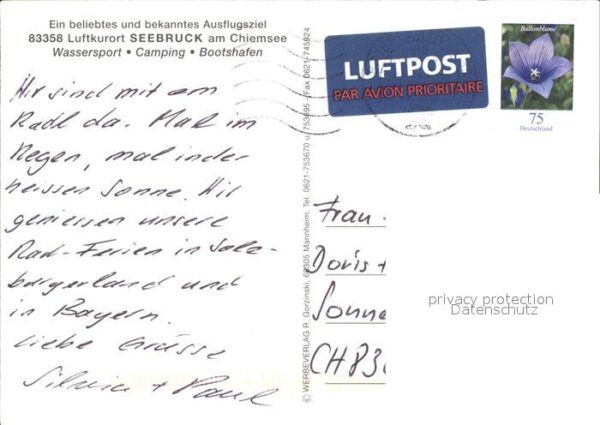 Ein beliebtes und bekanntes Ausflugsziel
83358 Luftkurort SEEBRUCK am Chiemsee
Wassersport • Camping • Bootshafen
Wir sind mit dem
Radl da. Mal im
Regen, mal in der
heissen Sonne. Wir
geniessen unsere
Rad-Ferien in Salz-
burgerland und
in Bayern.
Liebe Grüsse
Silvia + Paul
© WERBEVERLAG R. Gorzinski, 68305 Mannheim, Tel. 0621-753670 u. 753695 Fax 0621-745924
LUFTPOST
PAR AVION PRIORITAIRE
Ballonblume
75
Deutschland
Frau
Doris +
Sonne
CH83
privacy protection
Datenschutz